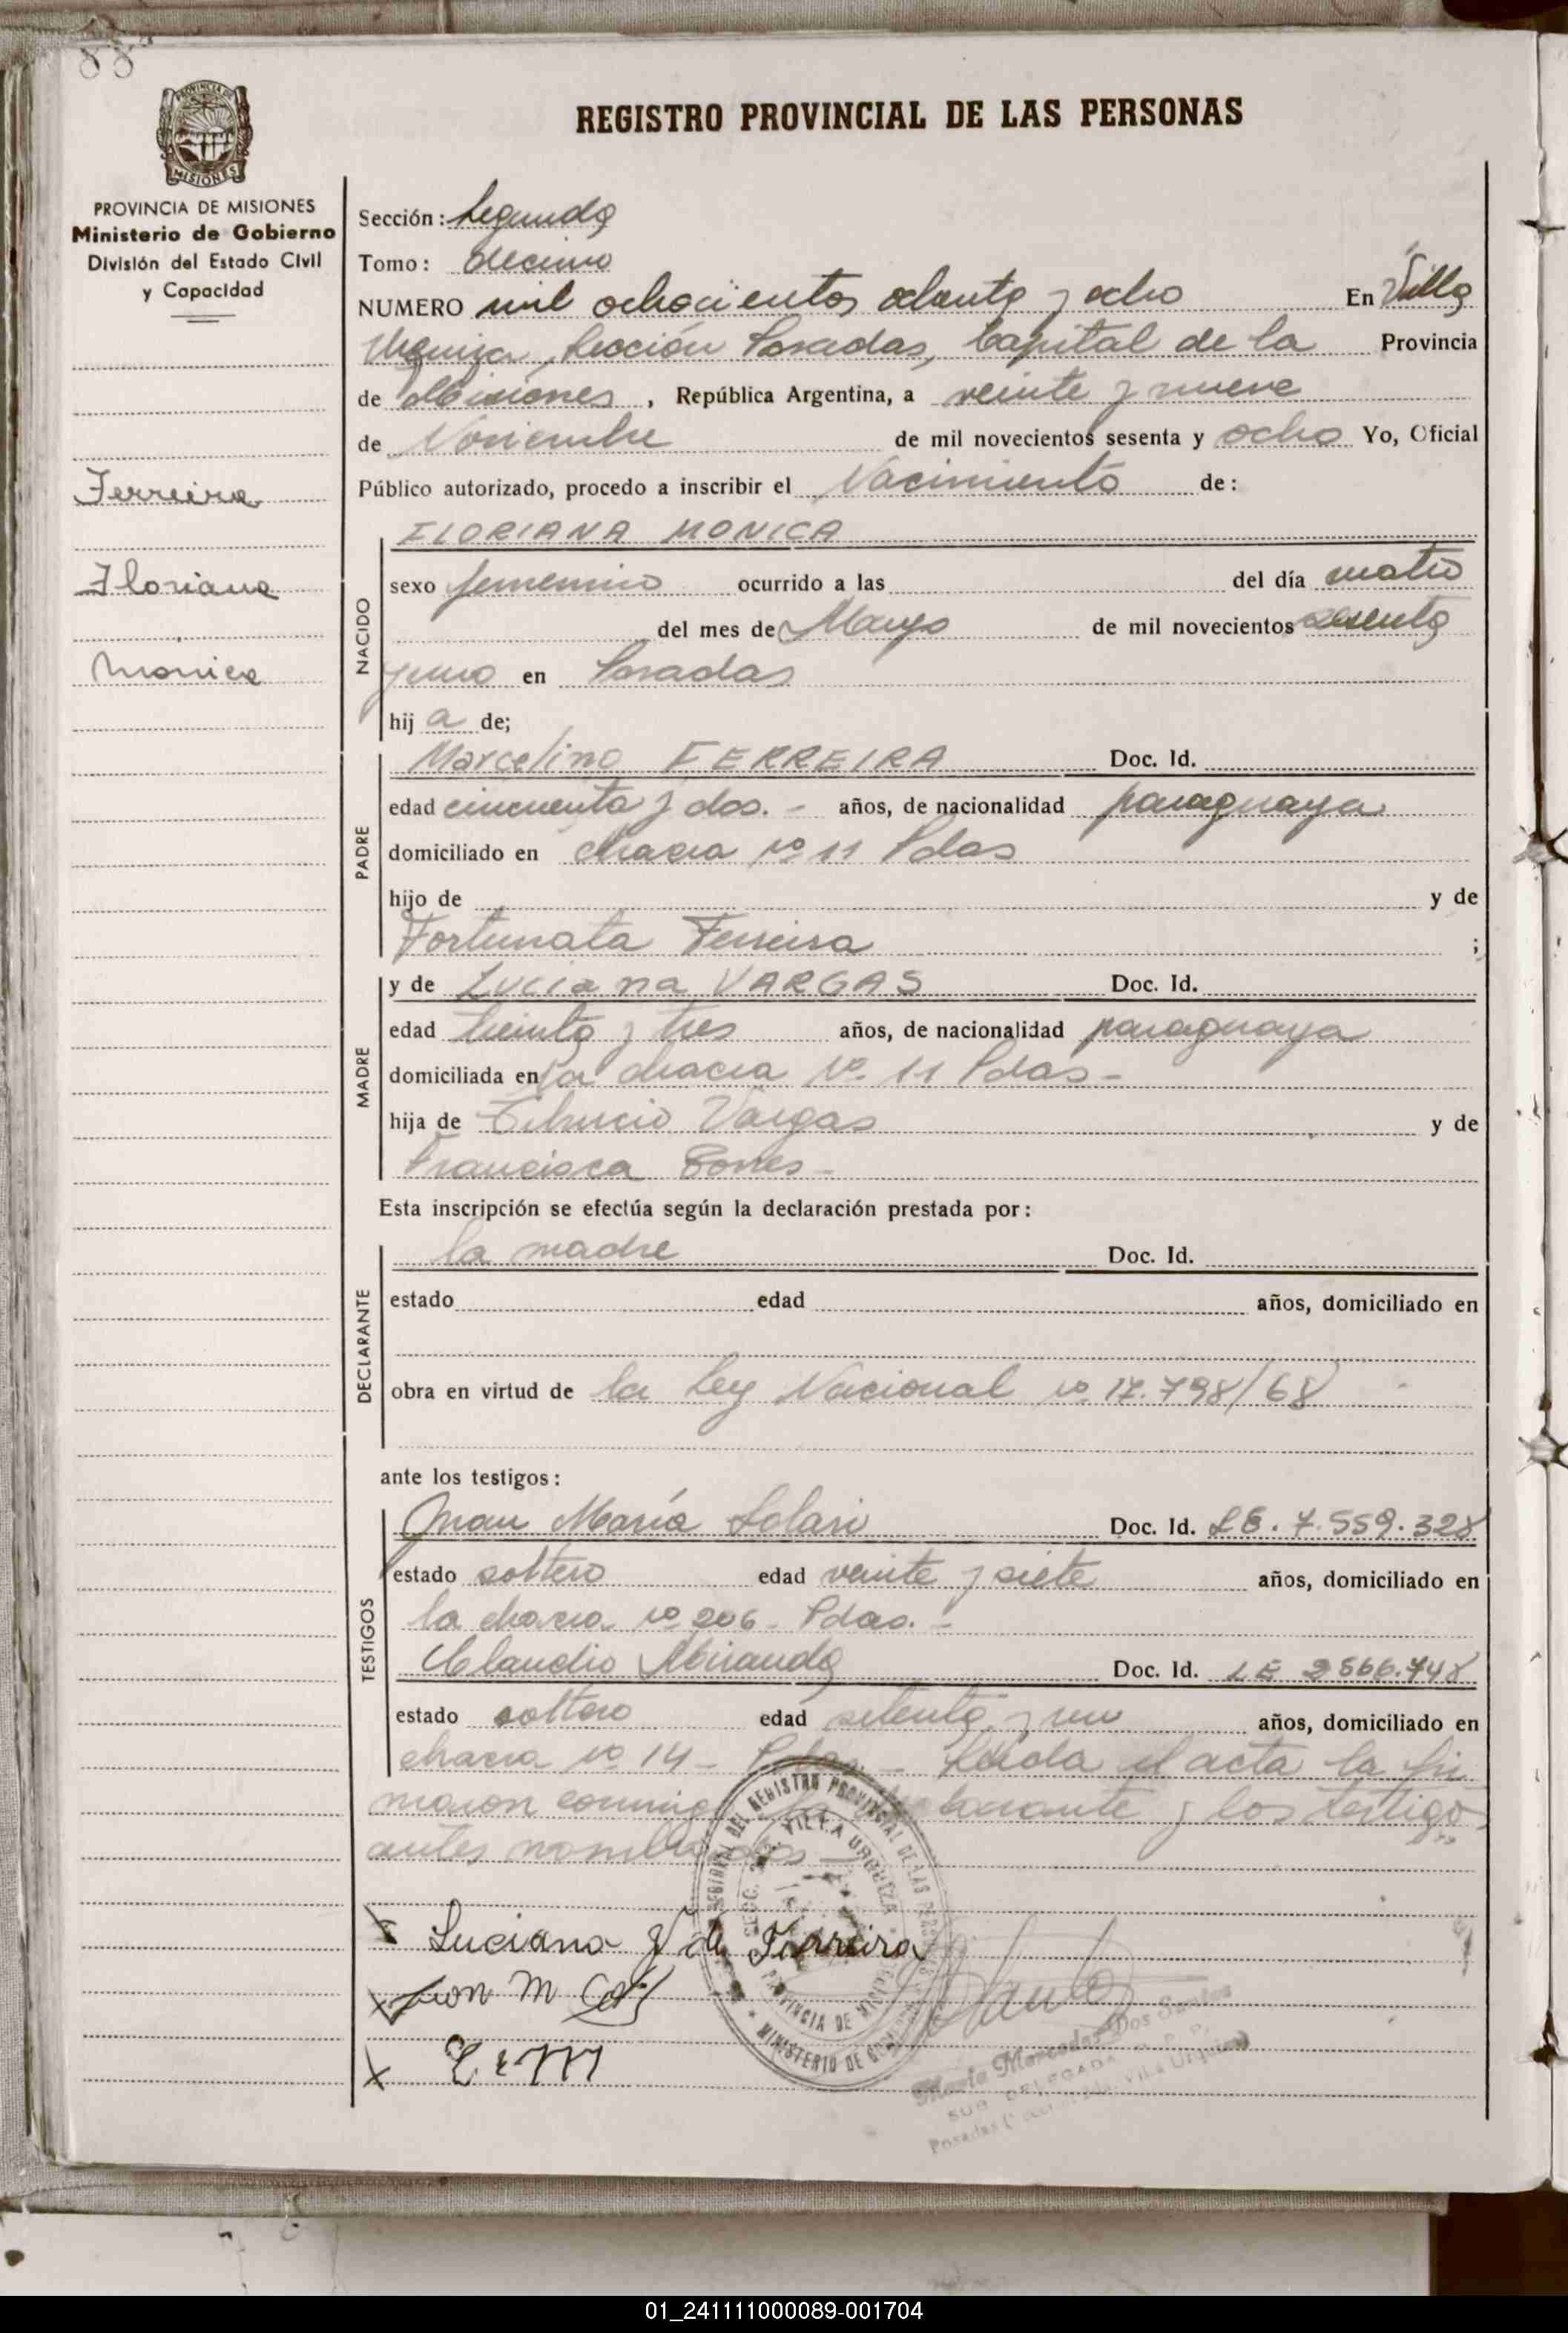 88
PROVINCIA DE
MISIONES
REGISTRO PROVINCIAL DE LAS PERSONAS
PROVINCIA DE MISIONES
Ministerio de Gobierno
División del Estado Civil
y Capacidad
Ferreira
Floriana
Monica
Sección: Segunda
Tomo: decimo
NUMERO mil ochocientos ochenta y ocho En Villa
Urquiza, Sección Posadas, Capital de la Provincia
de Misiones, República Argentina, a veinte y nueve
de Noviembre de mil novecientos sesenta y ocho Yo, Oficial
Público autorizado, procedo a inscribir el Nacimiento de:
NACIDO
FLORIANA MONICA
sexo femenino ocurrido a las del día cuatro
del mes de Mayo de mil novecientos sesenta
y uno en Posadas
hij a de;
PADRE
Marcelino FERREIRA Doc. Id.
edad cincuenta y dos. - años, de nacionalidad paraguaya
domiciliado en chacra nº 11 Pdas
hijo de y de
Fortunata Ferreira ;
MADRE
y de Luciana VARGAS Doc. Id.
edad treinta y tres años, de nacionalidad paraguaya
domiciliada en la chacra Nº 11 Pdas -
hija de Tiburcio Vargas y de
Francisca Torres -
Esta inscripción se efectúa según la declaración prestada por:
DECLARANTE
la madre Doc. Id.
estado edad años, domiciliado en
obra en virtud de la Ley Nacional nº 17.798/68
ante los testigos:
TESTIGOS
Juan María Solari Doc. Id. LE. 7.559.328
estado soltero edad veinte y siete años, domiciliado en
la chacra nº 206 - Pdas. -
Claudio Miranda Doc. Id. LE 2566.748
estado soltero edad setenta y un años, domiciliado en
chacra nº 14 - Pdas. - Leída el acta la fir
maron conmigo la declarante y los testigos
antes nombrados -
Luciana V de Ferreira
Maria Mercedes Dos Santos
SUB DELEGADA R. P. P.
Posadas Villa Urquiza
REGISTRO PROVINCIAL DE LAS PERSONAS
SECC. VILLA URQUIZA
PROVINCIA DE MISIONES
MINISTERIO DE GOBIERNO
01_241111000089-001704